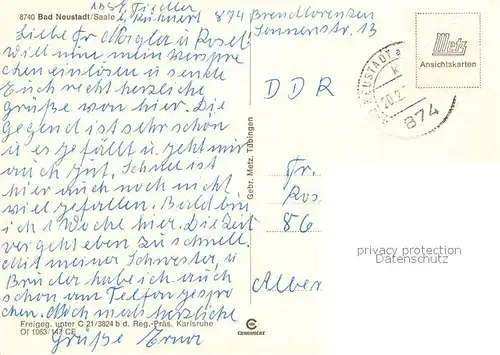 Abst. Fiedler
8740 Bad Neustadt/Saale b. Kühnert 874 Brendlorenzen
Sonnenstr. 13
Liebe Fr. Mörgler u. Rosel!
Will nun mein Verspre
chen einlösen u. sende
Euch recht herzliche
Grüße von hier. Die
Gegend ist sehr schön
u. es gefällt u. geht mir
auch gut, Schnee ist
hier auch noch nicht
viel gefallen. Bald bin
ich 1 Woche hier. Die Zeit
vergeht eben zu schnell.
Mit meiner Schwester, u.
Brüder habe ich auch
schon am Telefon gespro
chen. Nochmals herzliche
Grüße Erna
Freigeg. unter C 21/3824 b d. Reg.-Präs. Karlsruhe
Of 1083/147 CE
Gebr. Metz, Tübingen
Metz
Ansichtskarten
NEUSTADT a
k
20.2
874
DDR
Fr.
Ros
86
Alber
privacy protection
Datenschutz